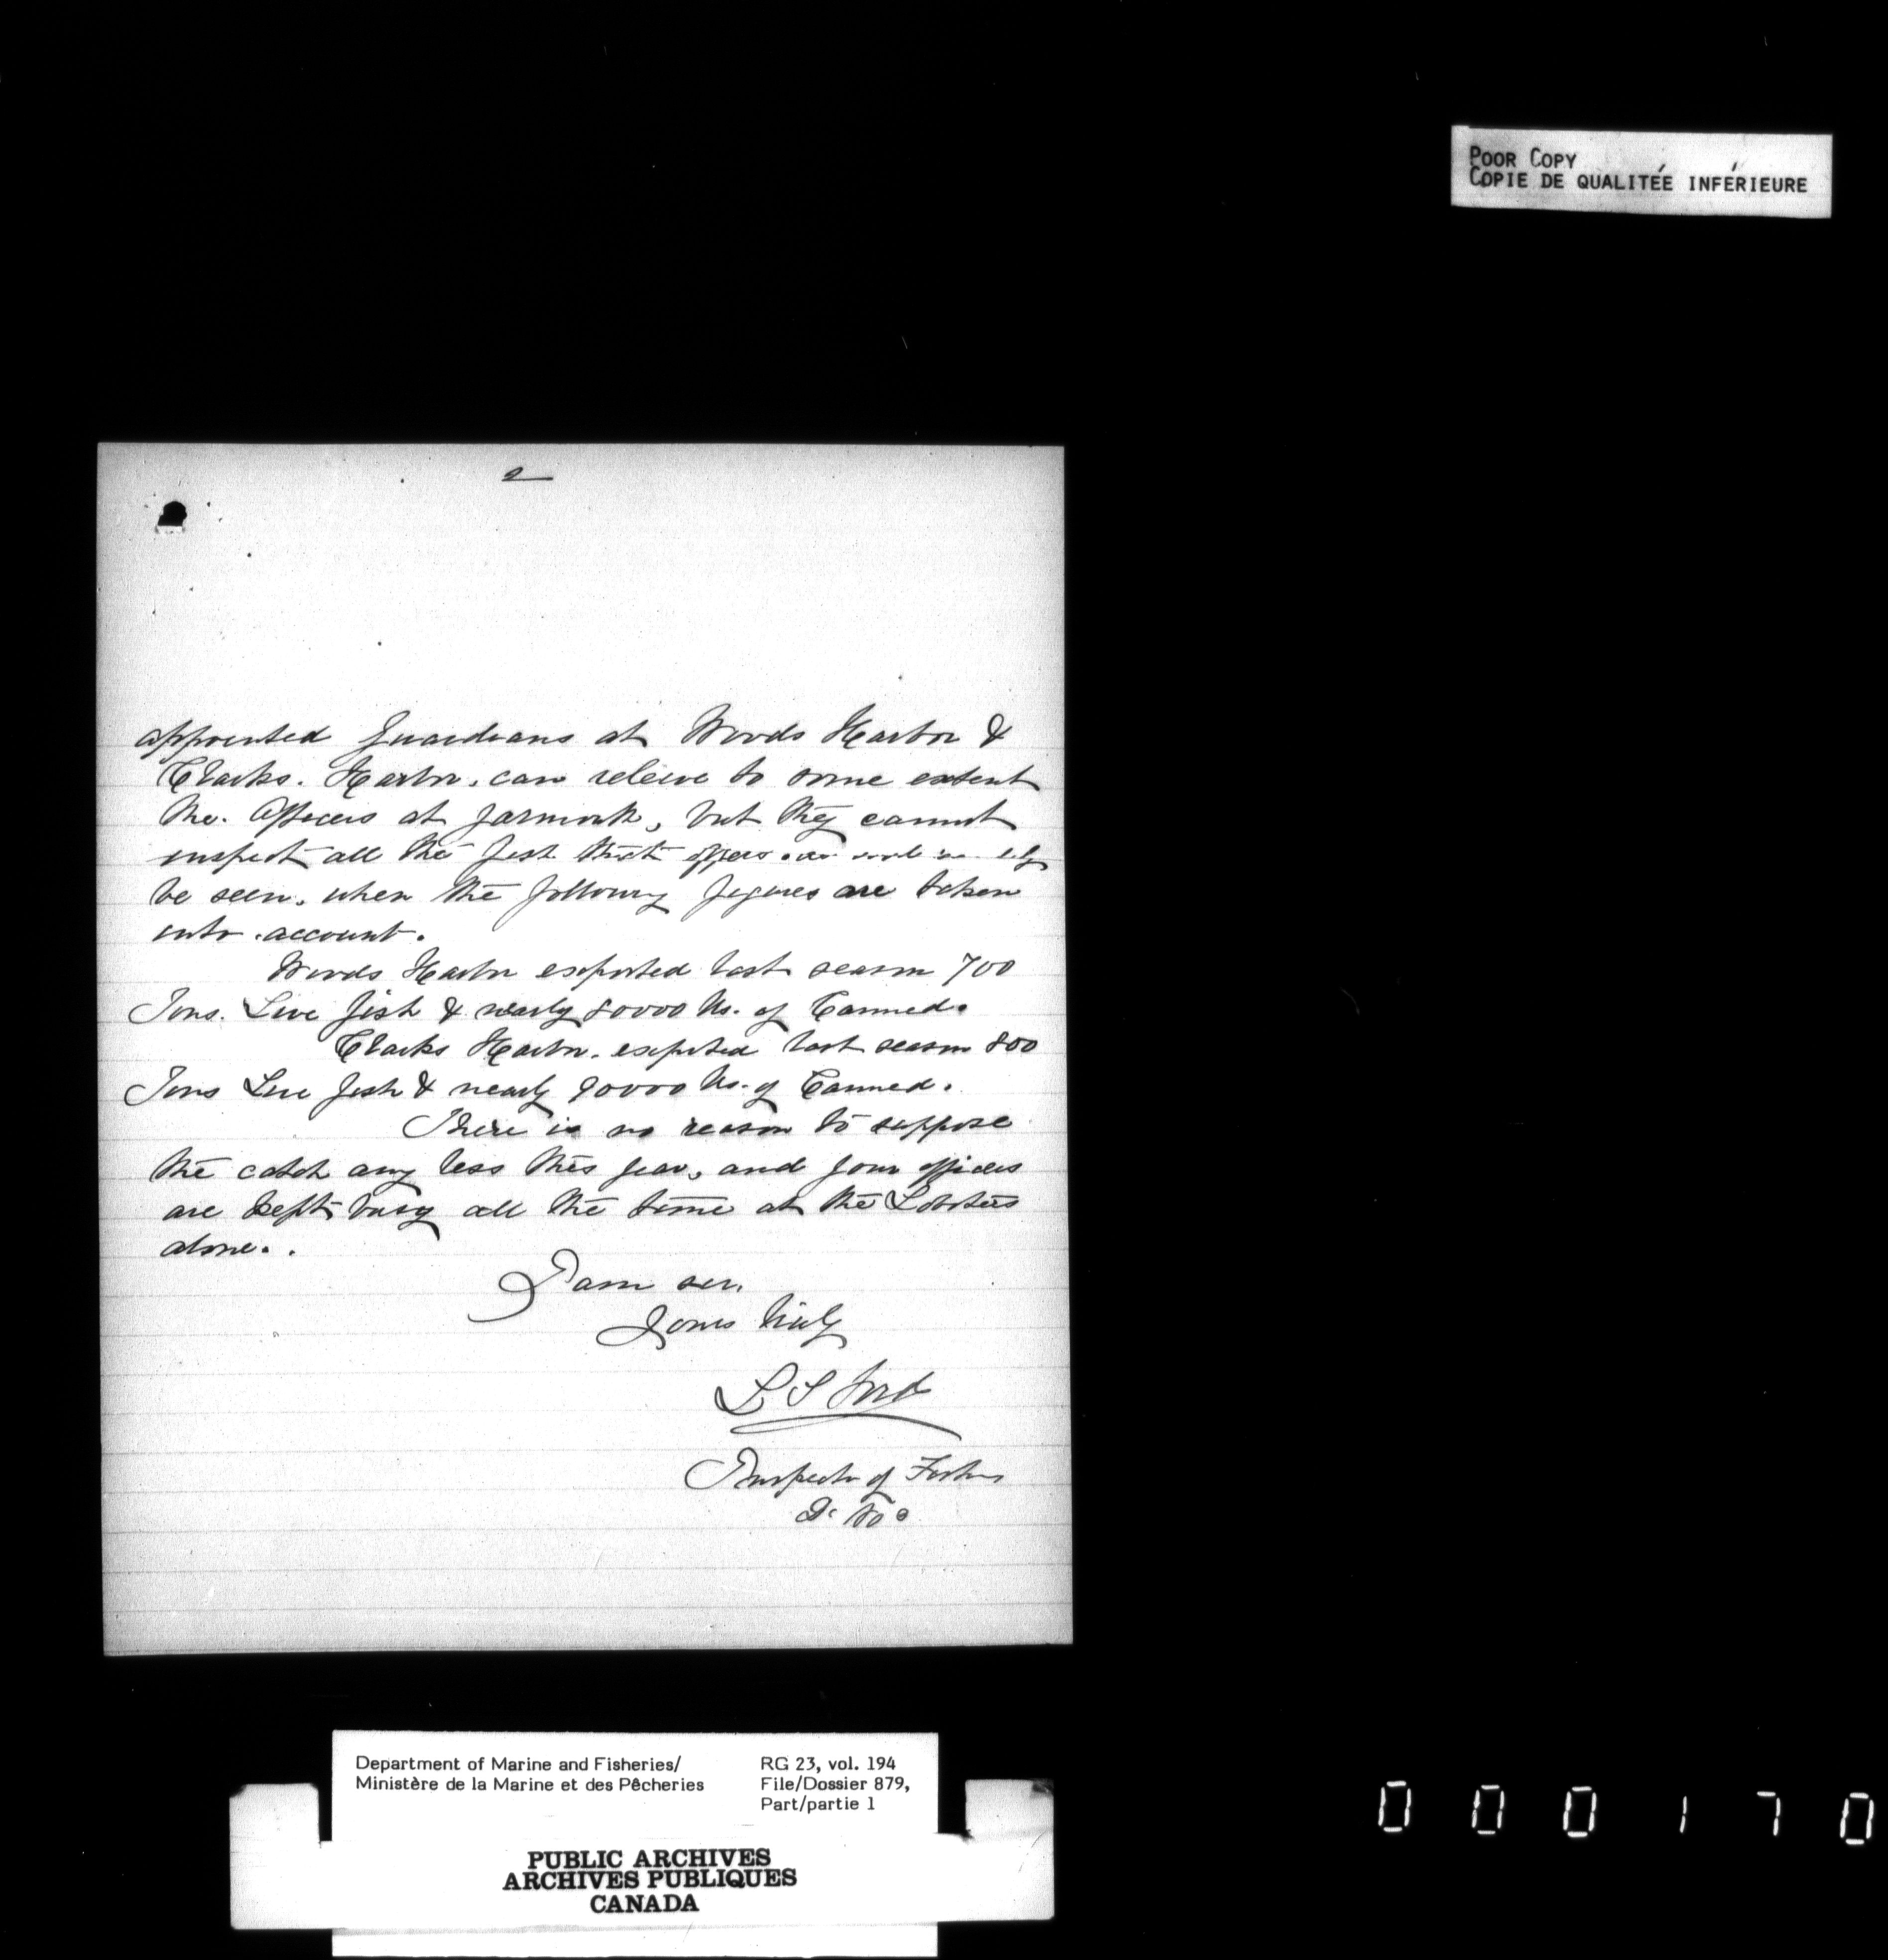 POOR COPY
COPIE DE QUALITÉE INFÉRIEURE
2
appointed Guardians at Woods Harbor &
Clarks. Harbor, can releive to some extent
the. Officers at Yarmouth, but they cannot
inspect all the fish that offers as will
be seen, when the following figures are taken
into account.
Woods Harbor exported last season 700
Tons. Live fish & nearly 80000 lbs. of Canned.
Clarks Harbor. exported last season 800
Tons Live fish & nearly 90000 lbs. of Canned.
There is no reason to suppose
the catch any less this year, and your officers
are kept busy all the time at the Lobsters
alone.
I am sir.
Yours truly
L S Ford
Inspector of Fisheries
Department of Marine and Fisheries/
Ministère de la Marine et des Pêcheries
RG 23, vol. 194
File/Dossier 879,
Part/partie 1
PUBLIC ARCHIVES
ARCHIVES PUBLIQUES
CANADA
000170